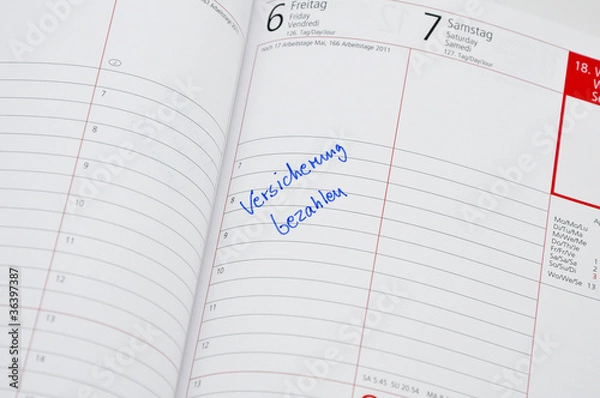 6 Freitag
Friday
Vendredi
126. Tag/Day/Jour
noch 17 Arbeitstage Mai, 166 Arbeitstage 2011
7 Samstag
Saturday
Samedi
127. Tag/Day/Jour
18. W
W
Se
7
8
9
10
11
12
13
14
7
8
9
10
11
12
13
Versicherung
bezahlen
Mo/Mo/Lu
Di/Tu/Ma
Mi/We/Me
Do/Th/Je
Fr/Fr/Ve
Sa/Sa/Sa
So/Su/Di
Wo/We/Se 13
A
1
2
3
SA 5.45 SU 20.54 MA 8
Adobe Stock
#36397387